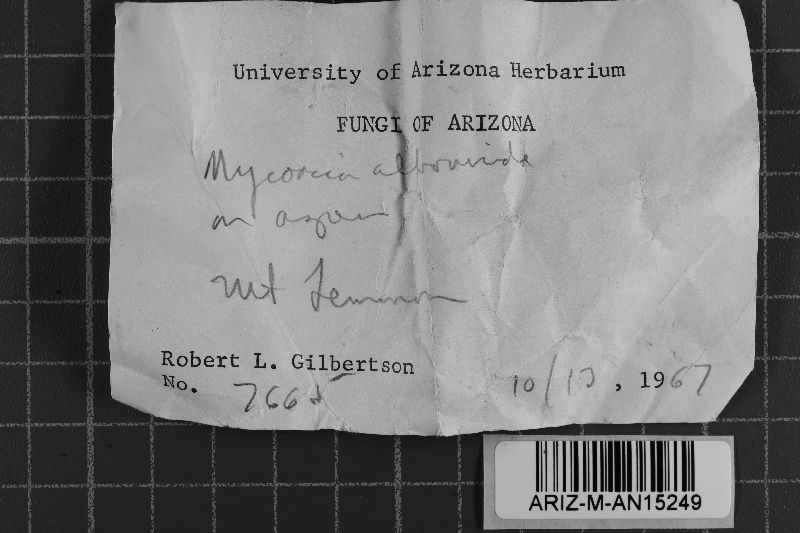 University of Arizona Herbarium
FUNGI OF ARIZONA
Mycoacia
on aspen
Mt Lemmon
Robert L. Gilbertson
No. 7665
10/13, 1967
ARIZ-M-AN15249